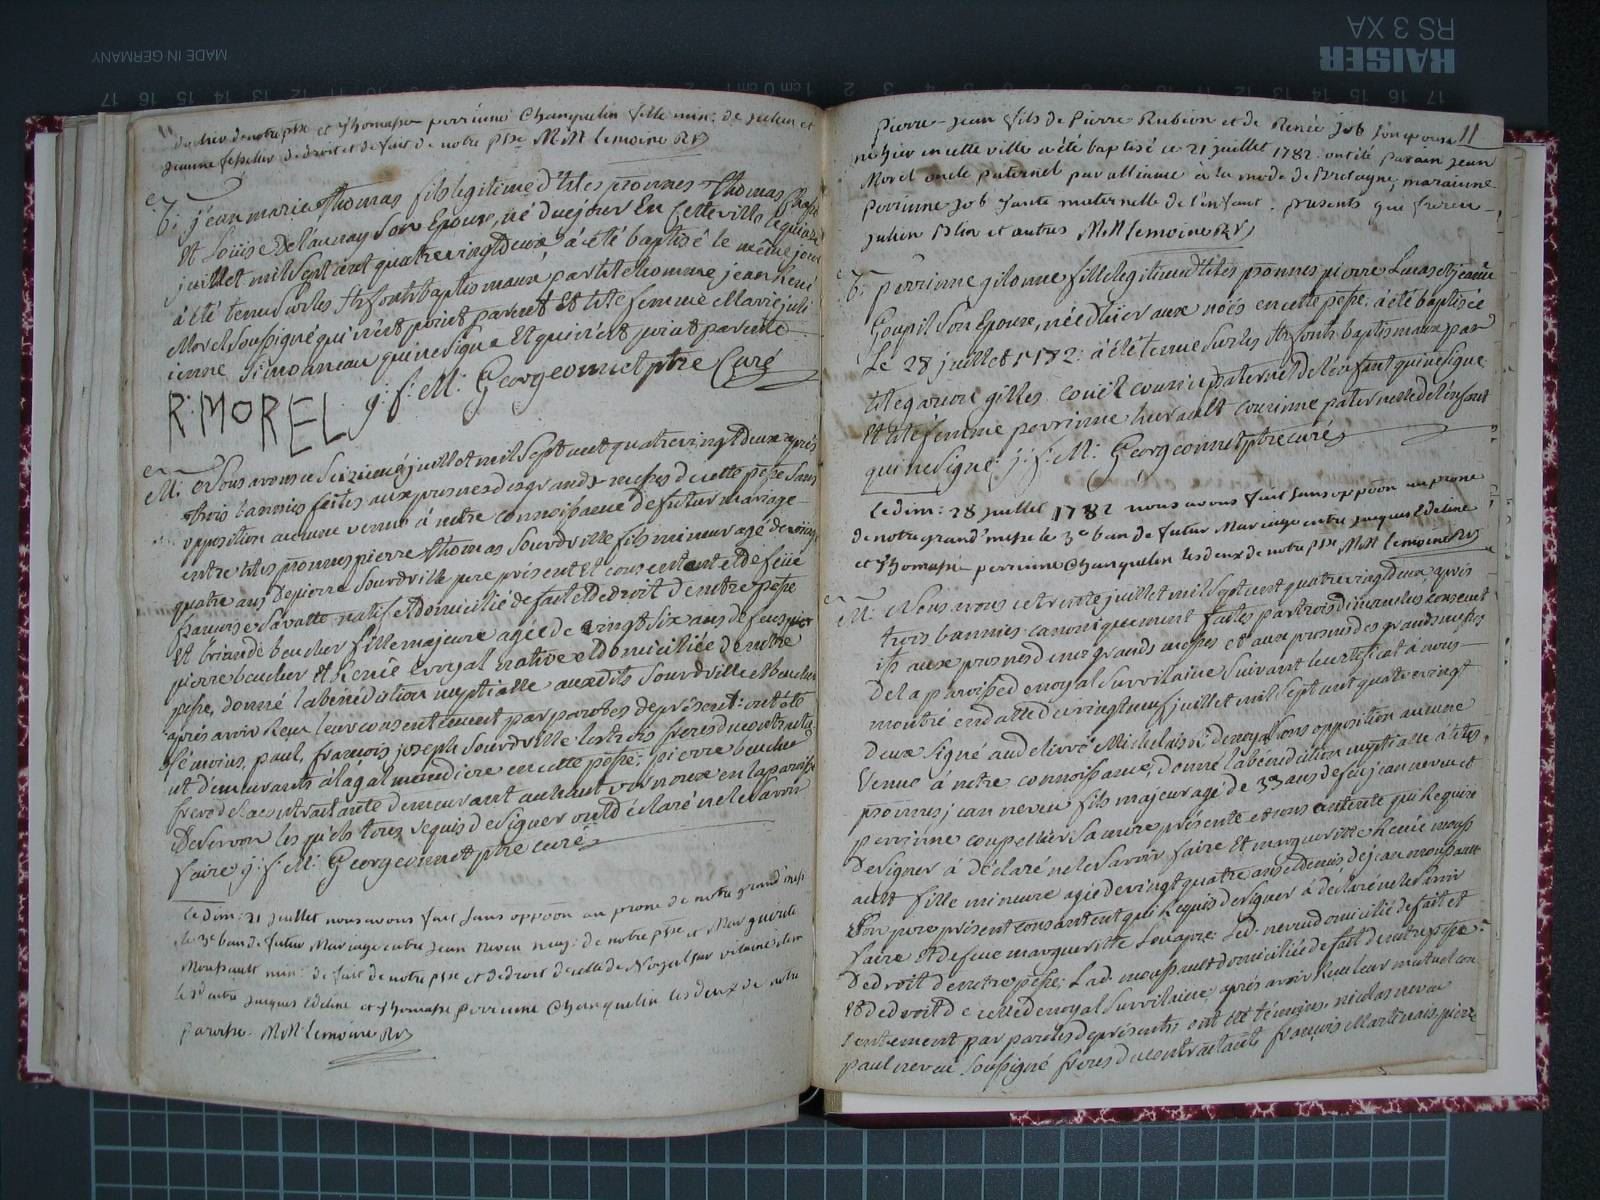 et thomasse perrinne Chanquelin fille min: de Julien et
Jeanne de droit et de fait de notre psse M M lemoine Rr
B: jean marie thomas fils legitime d'htes pronnes Thomas
et Louise Delaunay Son Epouse, né du ejour En Cette ville
juillet mil Sept cent quatre vingt deux a été baptisé le même jour
à été tenu Sur les Sts fonts baptismaux par hte homme jean René
Morel Soussigné qui n'est point parent Et hte femme Marie juli
ienne Simonneau qui ne Signe Et qui n'est point parente
R: MOREL j: f: M: Georgeonnet ptre Curé
M: Nous avons ce Seizieme juillet mil Sept cent quatre vingt deux après
trois bannies faites aux prosnes des grandes messes de cette psse Sans
opposition aucune venue à notre connoissance de futur mariage
entre htes pronnes pierre thomas Sourdville fils mineur agé de vingt
quatre ans de pierre Sourdville pere présent et consentent et de feue
françoise Savatte natif et domicilié de fait et de droit de notre psse
Et briande beucher fille majeure agée de vingt Six ans de feus pier
pierre beucher et Renée natíve et domiciliée de notre
psse, donné la bénédiction nuptialle auxdits Sourdville et beucher
après avoir Reçu leur consentement par paroles de présent: ont été
témoins, paul, françois, joseph Sourdville les trois freres du contractant
et demeurants à la galmandiere en cette psse; pierre beucher
frere de la contractante demeurant au haut en la paroisse
de Servon les quels tous Requis de signer ont déclaré ne le savoir
faire j: f: M: Georgeonnet ptre curé
Ce dim: 21 Juillet nous avons fait Sans oppoon au prone de notre grand messe
le 3e ban de futur Mariage entre Jean Neveu maj: de notre psse et Marguerite
Moussault min: de fait de notre psse et de droit de celle de Noyal sur vilaine idem
le 2d entre Jacques Edeline et thomasse perrinne Chanquelin les deux de notre
paroisse M M lemoine Rr
11
Pierre-Jean fils de Pierre Rubion et de Renée Job Son epouse
né hier en cette ville a été baptisé ce 21 juillet 1782. ont été parain Jean
Morel oncle paternel par alliance à la mode de Bretagne, maraine
Perrinne Job tante maternelle de l'enfant. presents qui
Julien Blin et autres M M lemoine Rr
B: perrinne gilonne fille legitime d'htes pronnes pierre Lucas et jeanne
Goupil Son Epouse, née d'hier aux noës en cette psse, à été baptisée
Le 28 juillet 1782: à été tenue Sur les Sts fonts baptismaux par
hte garçon gilles couël cousin paternel de l'enfant qui ne Signe
Et hte femme perrinne herault cousinne paternelle de l'enfant
qui ne Signe: j: f: M: Georgeonnet ptre curé
Ce dim: 28 Juillet 1782 nous avons fait Sans oppoon au prone
de notre grand'messe le 3e ban de futur Mariage entre Jacques Edeline
et thomasse perrinne Chanquelin les deux de notre psse M M lemoine Rr
M: Nous avons ce trente juillet mil Sept cent quatre vingt deux, après
trois bannies canoniquement faites par trois dimanches consecut
ifs aux prosnes de nos grandes messes et aux prosnes des grands messes
De la paroisse de noyal Sur vilaine Suivant le certificat à nous
montré en datte du vingt neuf juillet mil Sept cent quatre vingt
Deux Signé andelivré Michelais Rr de noyal Sans opposition aucune
Venue à notre connoissance, donné la bénédiction nuptialle à htes
pronnes jean neveu fils majeur agé de 33 ans de feu jean neveu et
perrinne coupellier Sa mere présente et consentente qui Requise
de Signer à déclaré ne le Savoir faire Et marguerite Renée mouss
ault fille mineure agée de vingt quatre ans et demis de jean moussault
Son pere présent consentent qui Requis de Signer à déclaré ne le Savoir
faire Et de feue marguerite Louapre. Led. neveu domicilié de fait et
de droit de notre psse; Lad. moussault domiciliée de fait de notre psse
et de droit de celle de noyal Sur vilaine, après avoir Reçu leur mutuel con
Sentement par paroles de présents, ont été témoins nicolas neveu
paul neveu Soussigné freres du contractants françois Martinais, pierre